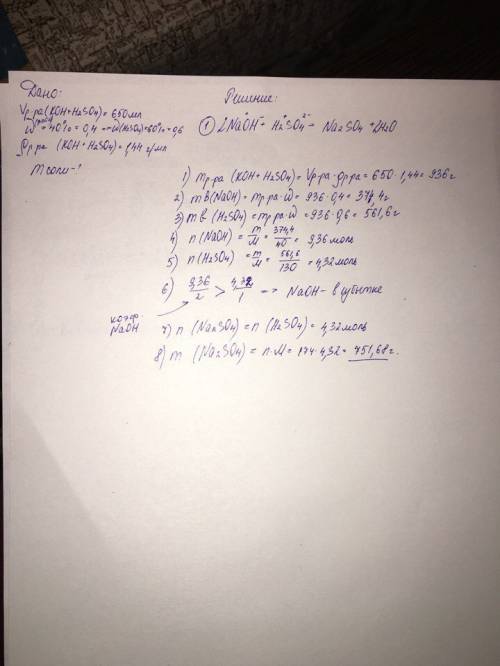 Дано:
Решение:
Vр-ра (KOH+H₂SO₄) = 650 мл
W = 40% = 0,4 => W(H₂SO₄) = 60% = 0,6
ρр-ра (KOH+H₂SO₄) = 1,44 г/мл
m соли - ?
① 2NaOH + H₂SO₄ → Na₂SO₄ + 2H₂O
1) mр-ра (KOH+H₂SO₄) = Vр-ра · ρр-ра = 650 · 1,44 = 936 г
2) mв (NaOH) = mр-ра · ω = 936 · 0,4 = 374,4 г
3) mв (H₂SO₄) = mр-ра · ω = 936 · 0,6 = 561,6 г
4) n (NaOH) = m/M = 374,4/40 = 9,36 моль
5) n (H₂SO₄) = m/M = 561,6/130 = 4,32 моль
6) 9,36/2 > 4,32/1 → NaOH - в избытке
коэф. NaOH
7) n (Na₂SO₄) = n (H₂SO₄) = 4,32 моль
8) m (Na₂SO₄) = n · M = 174 · 4,32 = 751,68 г.